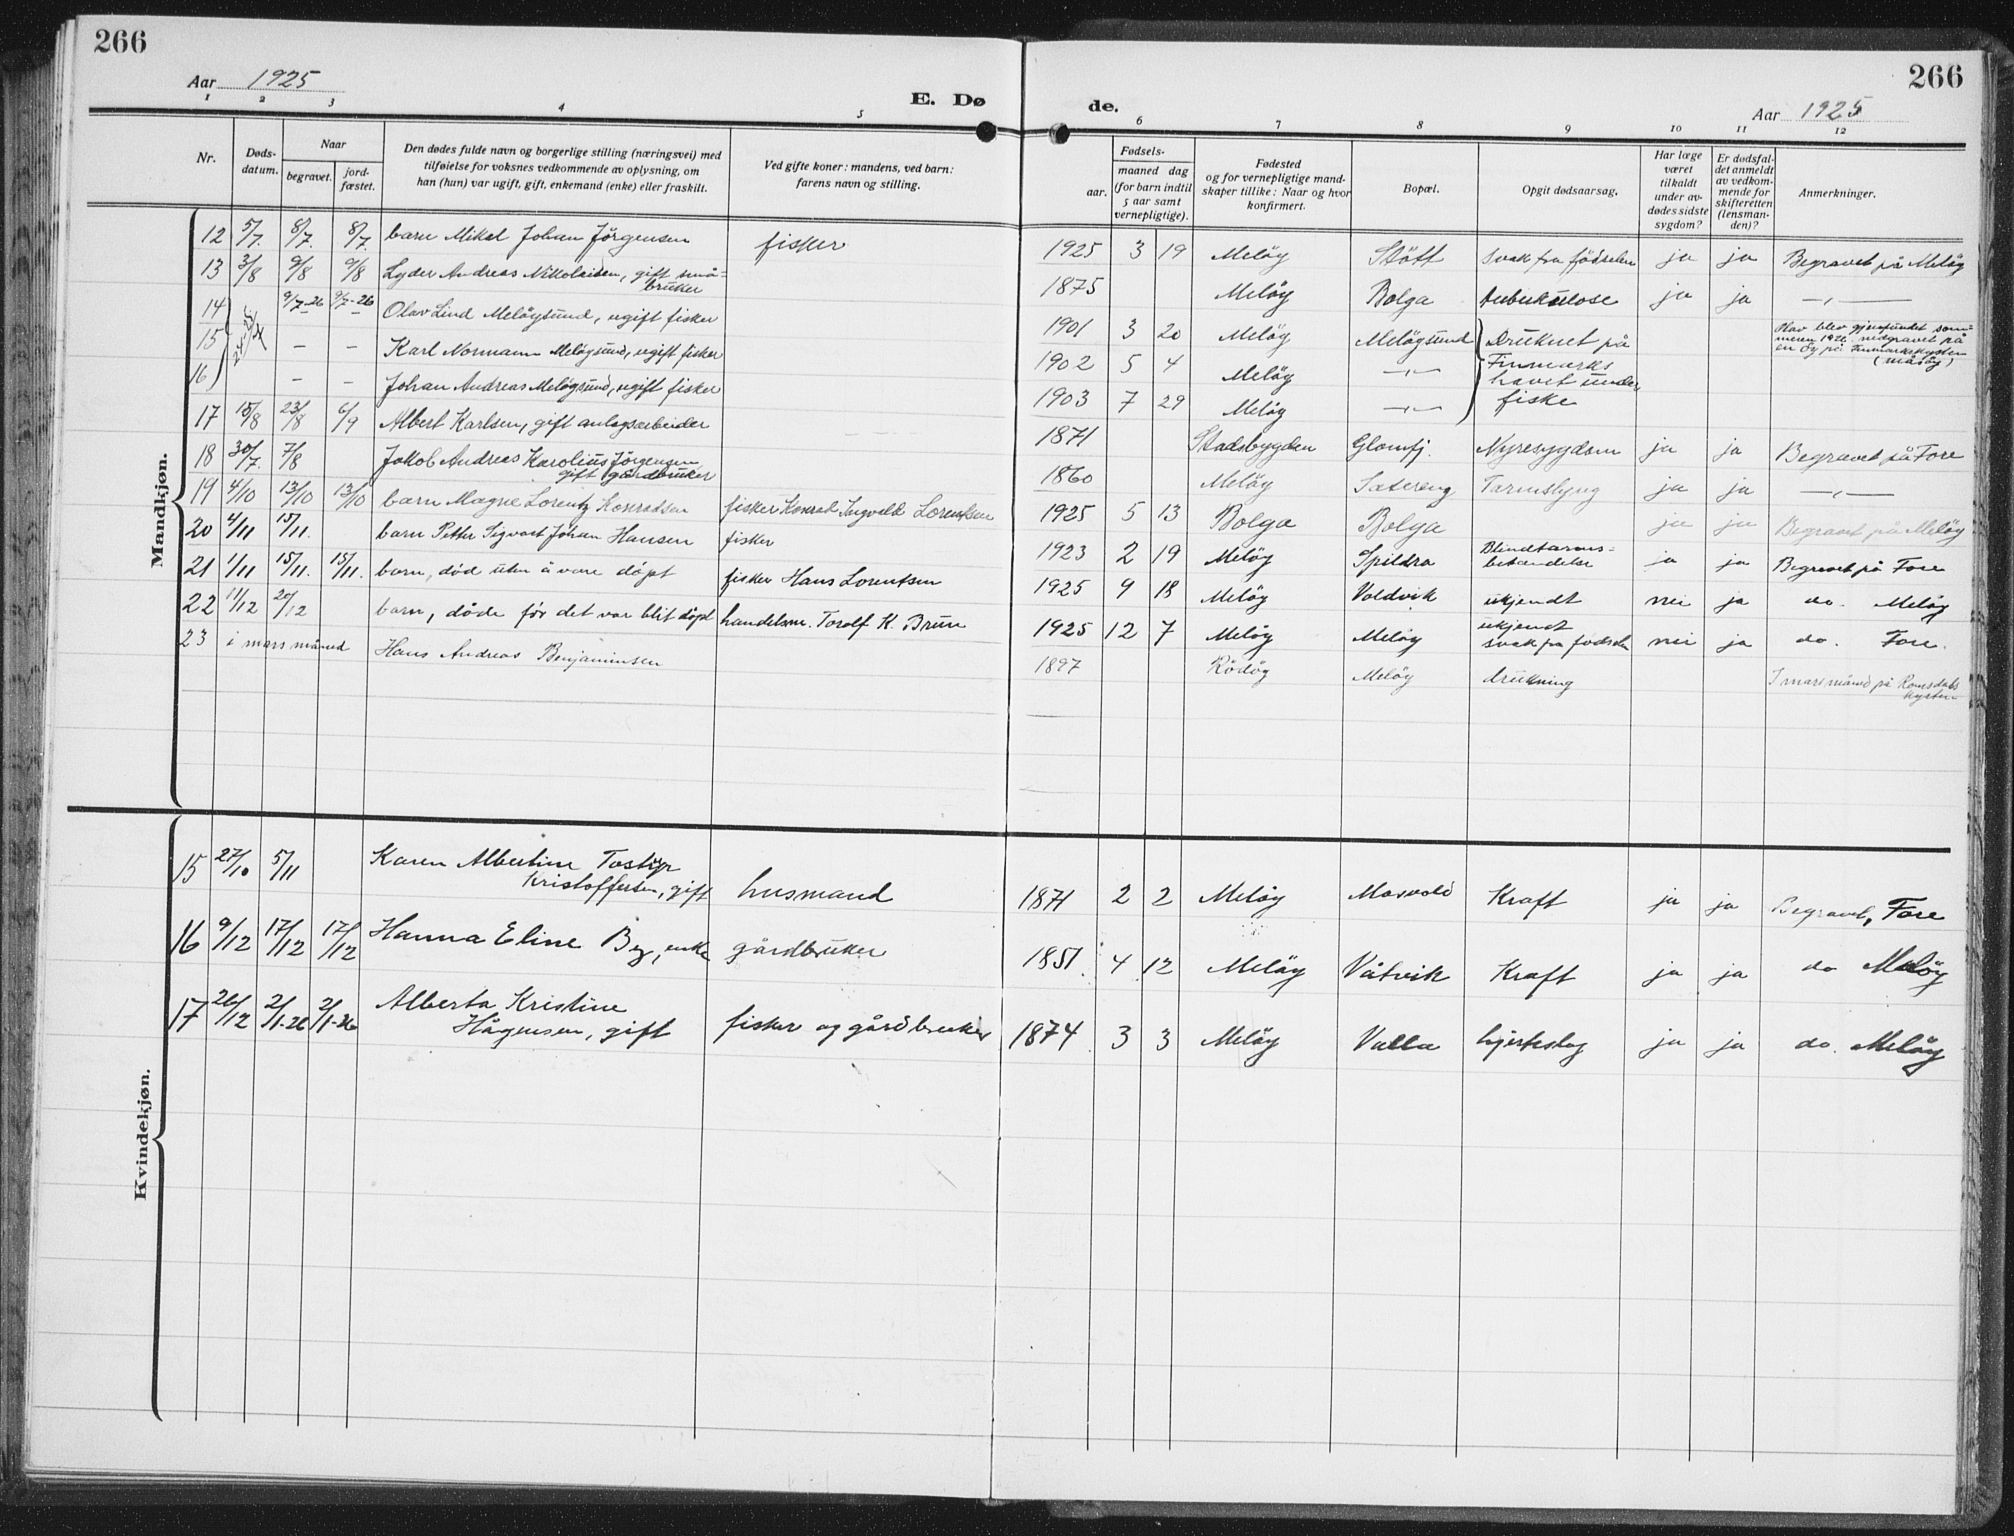 266
Aar 1925
E. Dø
de.
Aar 1925
266
1 2 3 4 5 6 7 8 9 10 11 12
Nr.
Døds-
datum.
Naar
begravet.
jord-
fæstet.
Den dødes fulde navn og borgerlige stilling (næringsvei) med
tilføielse for voksnes vedkommende av oplysning, om
han (hun) var ugift, gift, enkemand (enke) eller fraskilt.
Ved gifte koner: mandens, ved barn:
farens navn og stilling.
Fødsels-
aar.
maaned dag
(for barn indtil
5 aar samt
vernepligtige).
Fødested
og for vernepligtige mand-
skaper tillike: Naar og hvor
konfirmert.
Bopæl.
Opgit dødsaarsag.
Har læge
været
tilkaldt
under av-
dødes sidste
sygdom?
Er dødsfal-
det anmeldt
av vedkom-
mende for
skifteretten
(lensman-
den)?
Anmerkninger.
Mandkjøn.
12 5/7. 8/7. 8/7. barn Mikal Johan Jörgensen fisker 1925 3 19 Melöy Stött svak fra födselen ja ja Begravet på Melöy
13 3/8 9/8 9/8 Lyder Andreas Nikolaisen, gift små-
bruker 1875 Melöy Bolga tuberkulose ja ja —„—
14 9/7-26 9/7-26 Olav Lind Melöysund, ugift fisker 1901 3 20 Melöy Melöysund Druknet på
Olav blev gjenfundet som-
meren 1926, nedgravet på
en öy på Finmarkskysten
(Måsöy)
15 24-25/ – – Karl Normann Melöysund, ugift fisker 1902 5 4 Melöy —„— Finmarks
havet under
16 – – Johan Andreas Melöysund, ugift fisker 1903 7 29 Melöy —„— fiske
17 15/8 23/8 6/9 Albert Karlsen, gift anlagsarbeider 1871 Stadsbygden Glomfj. Nyresygdom ja ja Begravet på Fore
18 30/7. 7/8 Jakob Andreas Karolius Jörgensen
gift gårdbruker 1860 Melöy Sætereng Tarmslyng ja ja —„—
19 4/10 13/10 13/10 barn Magne Lorentz Konradsen fisker Konrad Ingvald Lorentsen 1925 5 13 Bolga Bolga ja ja Begravet på Melöy
20 4/11 15/11. barn Petter Sigvart Johan Hansen fisker 1923 2 19 Melöy Spildra Blindtarms-
betændelse ja ja Begravet på Fore
21 1/11 15/11. 15/11. barn, död uten å være döpt fisker Hans Lorentsen 1925 9 18 Melöy Voldvik ukjendt nei ja do. Melöy
22 11/12 20/12 barn, döde för det var blit döpt handelsm. Torolf K. Brun 1925 12 7 Melöy Melöy ukjendt
svak fra fødselen nei ja do. Fore.
23 i mars måned Hans Andreas Benjaminsen 1897 Rödöy Melöy drukning I mars måned på Romsdals
kysten
Kvindekjøn.
15 27/10 5/11 Karen Albertine
Kristoffersen, gift husmand 1871 2 2 Melöy Mosvold Kraft ja ja Begravet, Fore
16 9/12 17/12 17/12 Hanna Eline By, enke gårdbruker 1851 4 12 Melöy Våtvik Kraft ja ja do Melöy
17 26/12 2/1-26 2/1-26 Alberta Kristine
Hågensen, gift fisker og gårdbruker 1874 3 3 Melöy Valla hjerteslag ja ja do. Melöy